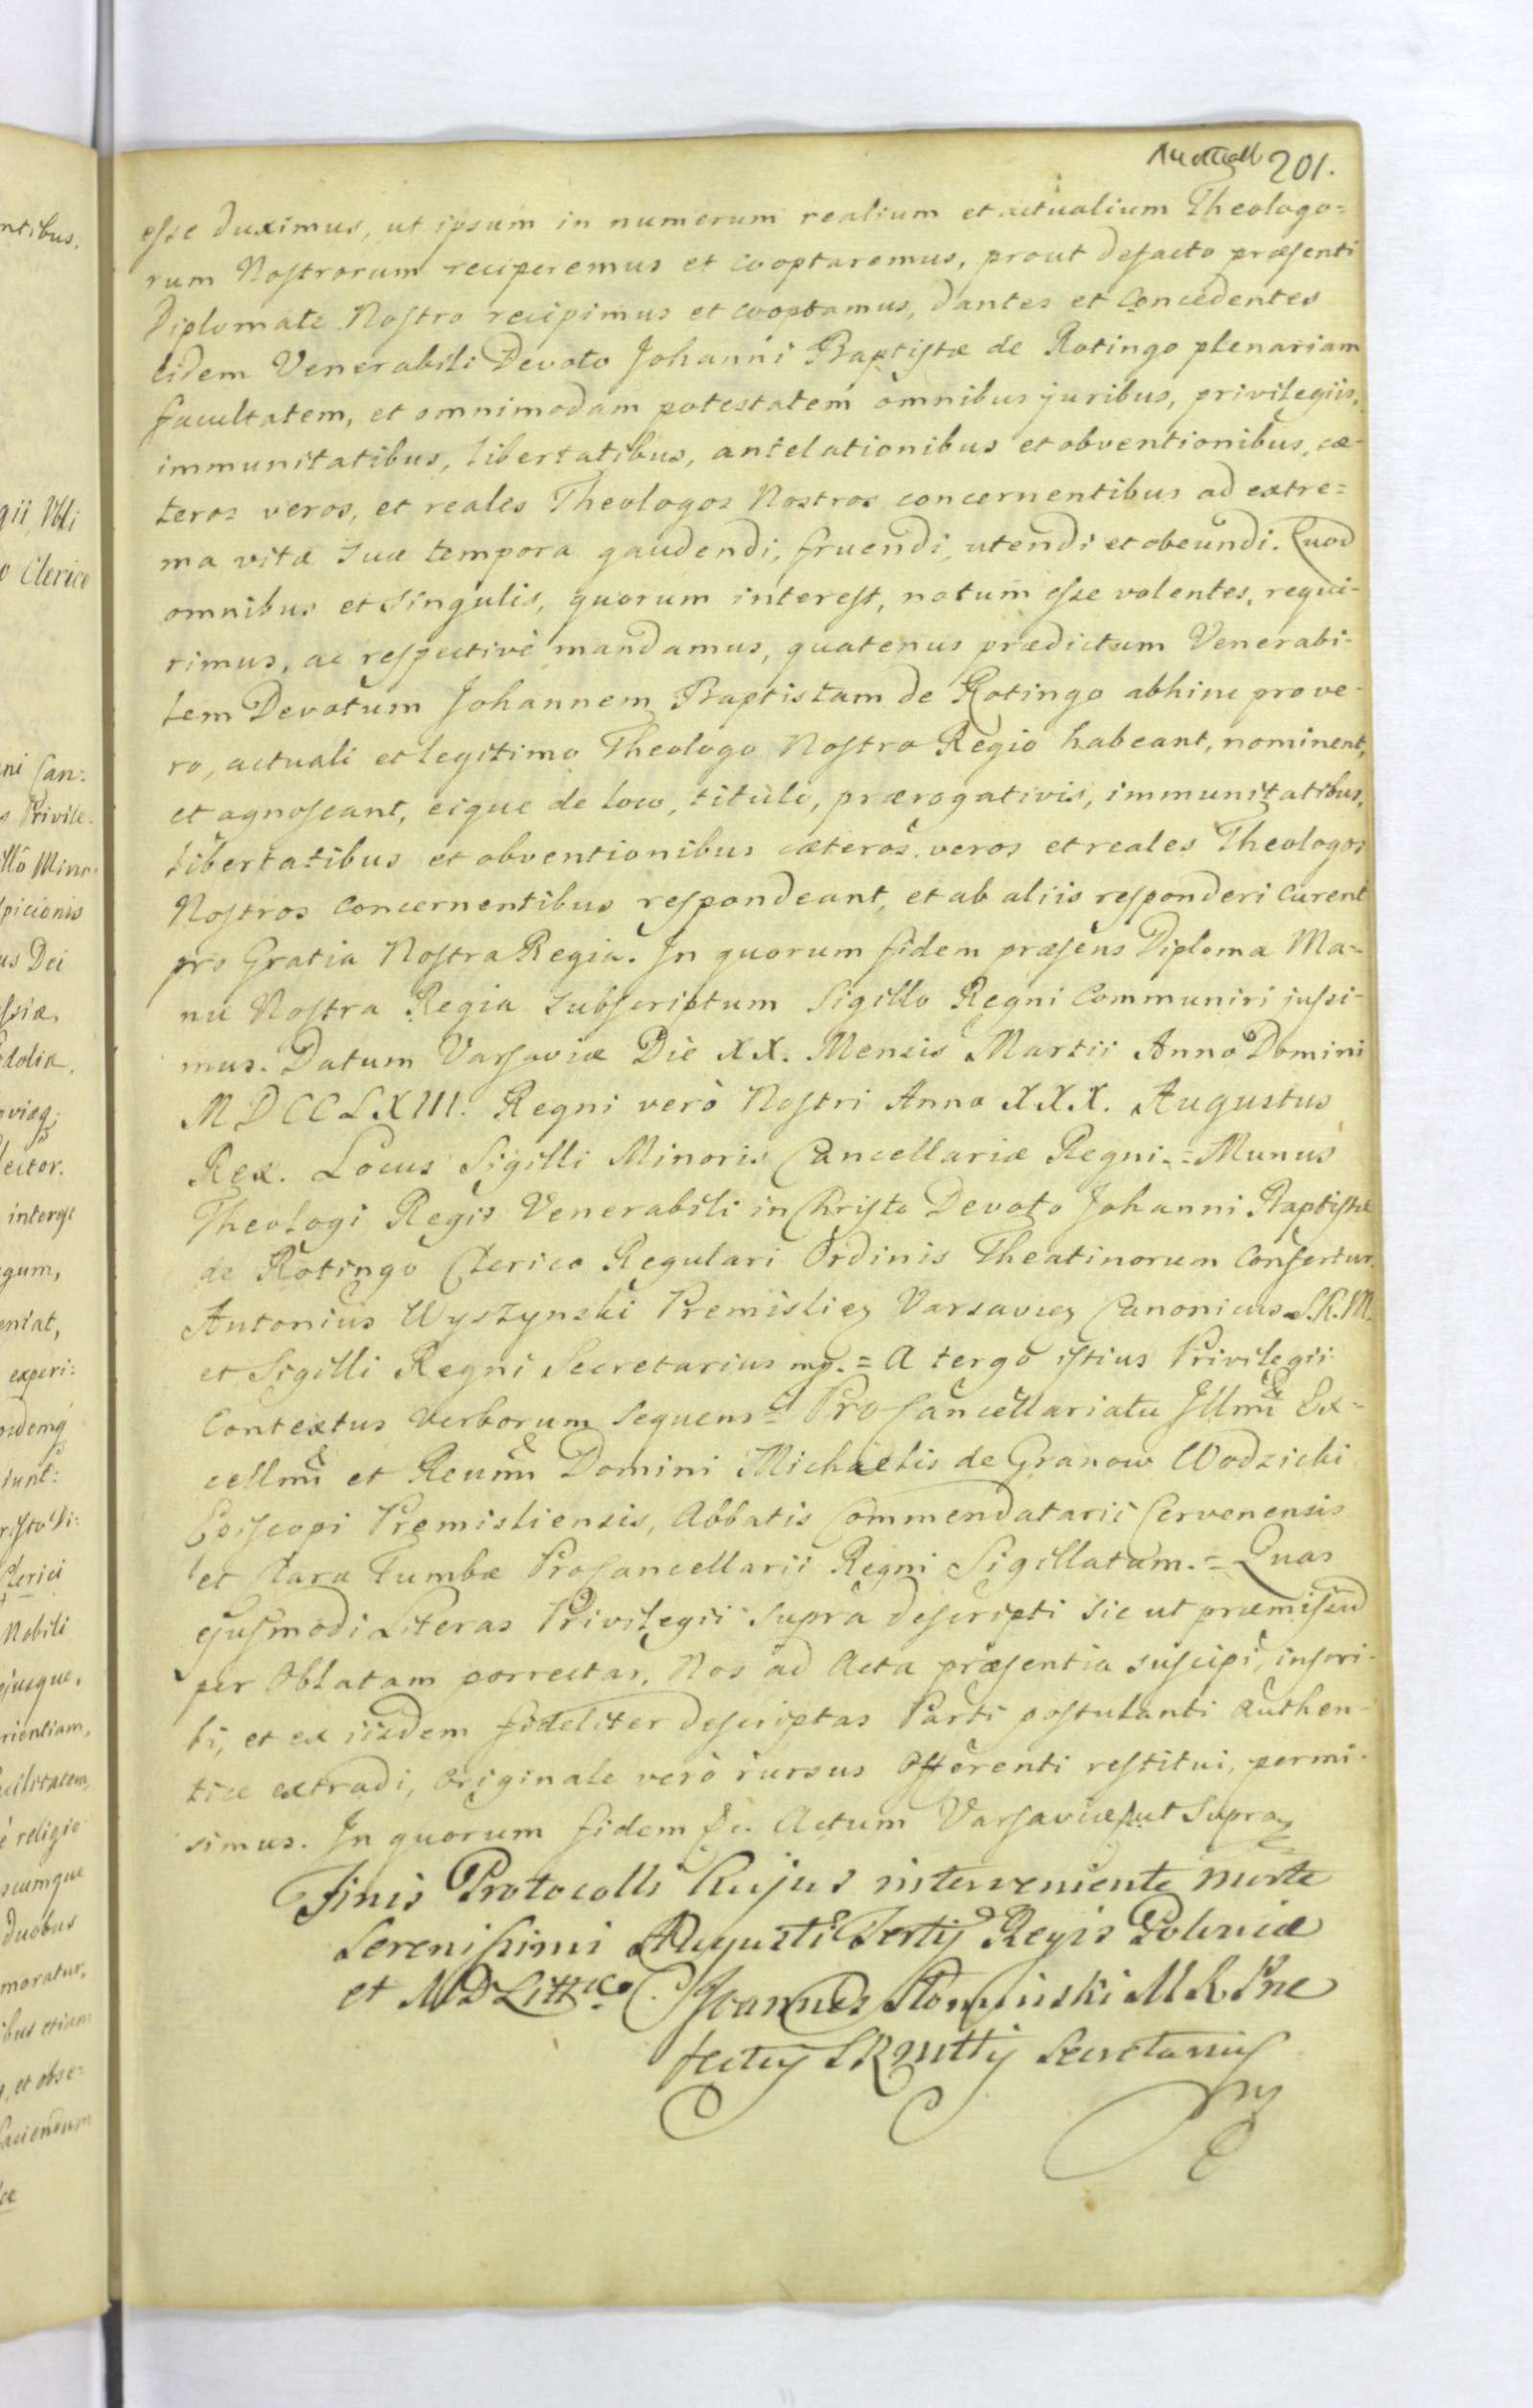 201.
esse duximus, ut ipsum in numerum realium et actualium Theologo=
rum Nostrorum reciperemus et cooptaremus, prout defacto præsenti
Diplomate Nostro recipimus et cooptamus, dantes et Concedentes
eidem Venerabili Devoto Johanni Baptistæ de Rotingo plenariam
facultatem, et omnimodam potestatem omnibus juribus, privilegiis,
immunitatibus, libertatibus, antelationibus et obventionibus, cæ-
teros veros, et reales Theologos Nostros concernentibus ad extre=
ma vitæ suæ tempora gaudendi, fruendi, utendi et obeundi. Quod
omnibus et singulis, quorum interest, notum esse volentes, requi-
rimus, ac respective mandamus, quatenus prædictum Venerabi-
lem Devotum Johannem Baptistam de Rotingo abhinc pro ve-
ro, actuali et legitimo Theologo Nostro Regio habeant, nominent,
et agnoscant, eique de loco, titulo, prærogativis, immunitatibus,
libertatibus et obventionibus cæteros veros et reales Theologos
Nostros Concernentibus respondeant, et ab aliis responderi Curent
pro Gratia Nostra Regia. In quorum fidem præsens Diploma Ma-
nu Nostra Regia subscriptum Sigillo Regni Communiri jussi-
mus. Datum Varsaviæ Die XX. Mensis Martii Anno Domini
MDCCLXIII. Regni verò Nostri Anno XXX. Augustus
Rex. Locus Sigilli Minoris Cancellariæ Regni. = Munus
Theologi Regis Venerabili in Christo Devoto Johanni Baptistæ
de Rotingo Clerico Regulari Ordinis Theatinorum Confertur.
Antonius Wyszynski Premislieŋ Varsavieŋ Canonicus S.R.M.
et Sigilli Regni Secretarius mp. = A tergo istius Privilegii
Contextus Verborum Sequens = ProCancellariatu Illmi Ex=
cellmi et Reumi Domini Michaelis de Granow Wodzicki
Episcopi Premisliensis, Abbatis Commendatarii Cervenensis
et Claræ Tumbæ ProCancellarii Regni Sigillatum. = Quas
ejusmodi Literas Privilegii Supra descripti sic ut præmissu
per Oblatam porrectas, Nos ad Acta præsentia suscipi, inscri-
bi, et ex iisdem fideliter descriptas Parti postulanti authen-
tice extradi, Originale verò rursus Offerenti restitui, permi-
simus. In quorum fidem &c. Actum Varsaviæ, ut Supra
Finis Protocolli hujus interveniente morte
Serenissimi Augusti Tertij Regis Poloniæ
et MDLittæ. Joannes Słomiński M R Præ
fectus S R Mttij Secretarius
mp
ntibus,
gii, Nbli
o Clerico
ni Can:
s Privile-
llô Mino-
spicionis
us Dei
ssiæ,
dolia.
viæq;
lector.
interge
gum,
eniat,
experi:
idemq
iunt:
risto Di:
Clerici
Nobili
ejusque,
rientiam,
acilitatem,
religio
scumque
duobus
moratur,
ibus etiam
et obse-
aciendum